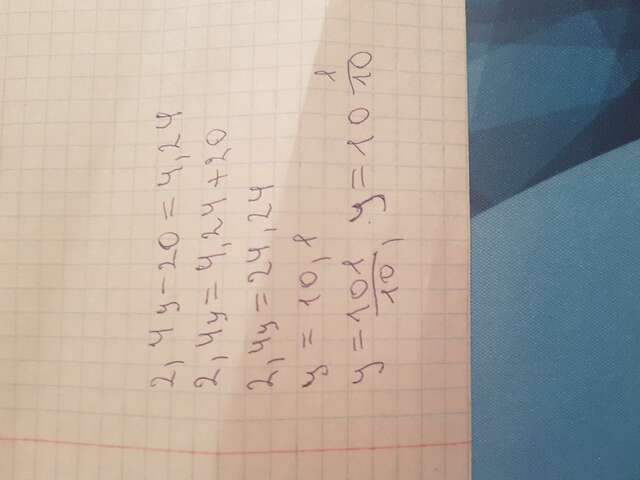 2,4y-20=4,24
2,4y=4,24+20
2,4y=24,24
y=10,1
y=101/10, y=10 1/10